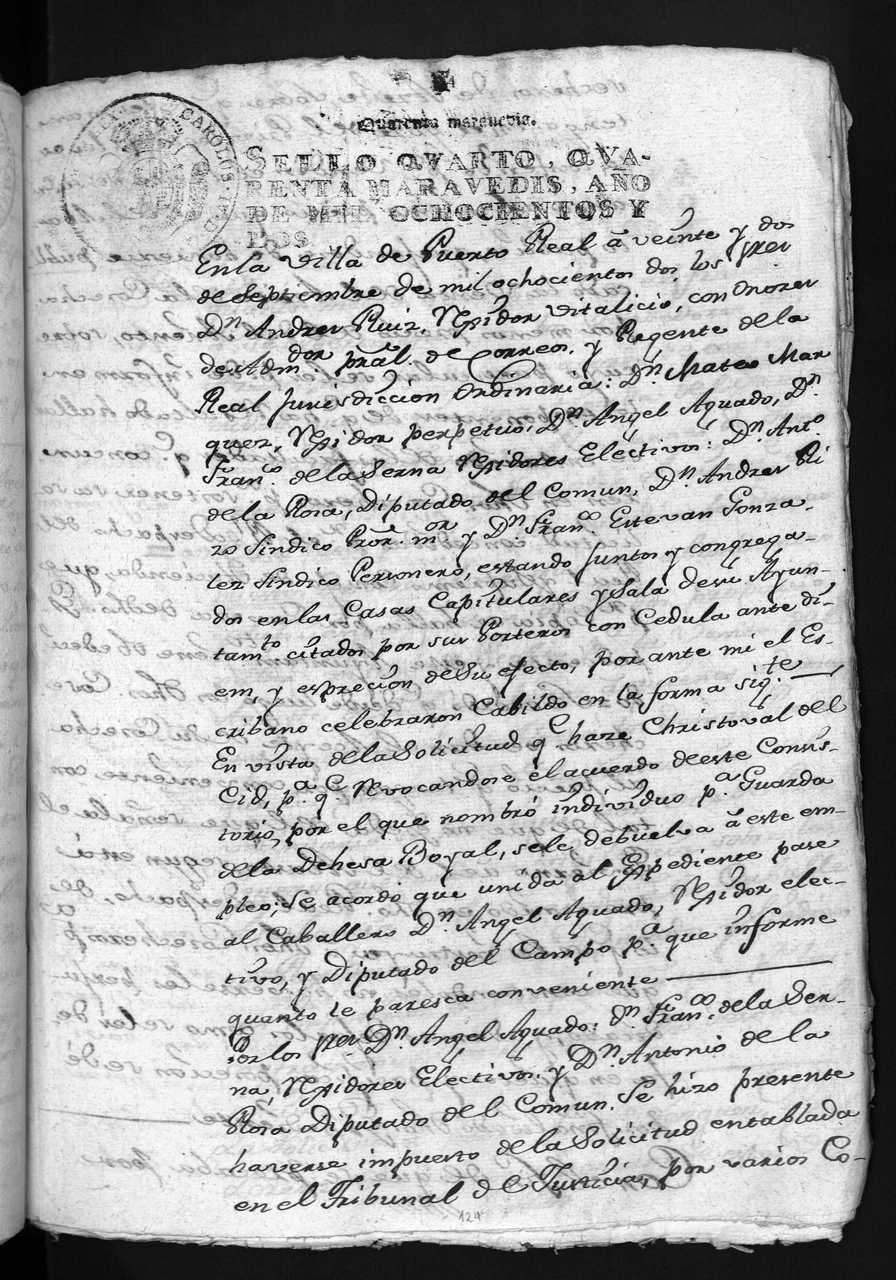 CAROLUS
Quarenta maravedis.
SELLO QVARTO, QVA-
RENTA MARAVEDIS, AÑO
DE MIL OCHOCIENTOS Y
DOS
En la Villa de Puerto Real â veinte y dos
de Septiembre de mil ochocientos dos los Sres
Dn. Andres Ruiz, Rexidor Vitalicio, con Onores
de Admdor. pral. de Correos, y Regente de la
Real Jurisdiccion Ordinaria: Dn. Mateo Mar
quez, Rexidor perpetuo, Dn. Angel Aguado, Dn.
Franco. de la Serna Rexidores Electivos: Dn. Anto.
de la Rosa, Diputado del Comun, Dn. Andres Ri
zo Sindico Pror. mor. y Dn. Franco. Estevan Gonza-
lez Sindico Personero, estando juntos y congrega-
dos en las Casas Capitulares y Sala de su Ayun-
tamto. citados por sus Porteros con Cedula ante di-
em, y esprecion de Su efecto, por ante mi el Es-
cribano celebraron Cabildo en la forma sigte.
En vista de la Solicitud qe. haze Christoval del
Cid, pa. qe. revocandose el acuerdo de este Consis-
torio, por el que nombró individuo pa. Guarda
de la Dehesa Boyal, se le debuelva â este em-
pleo; Se acordó que unida al Espediente pase
al Caballero Dn. Angel Aguado, Rexidor elec-
tivo, y Diputado del Campo pa. que informe
quanto le paresca conveniente
Por los Sres. Dn. Angel Aguado: Dn. Franco. de la Ser-
na, Rexidores Electivos, y Dn. Antonio de la
Rosa Diputado del Comun. Se hizo presente
haverse impuesto de la Solicitud entablada
en el Tribunal de Justicia, por varios Co-
124